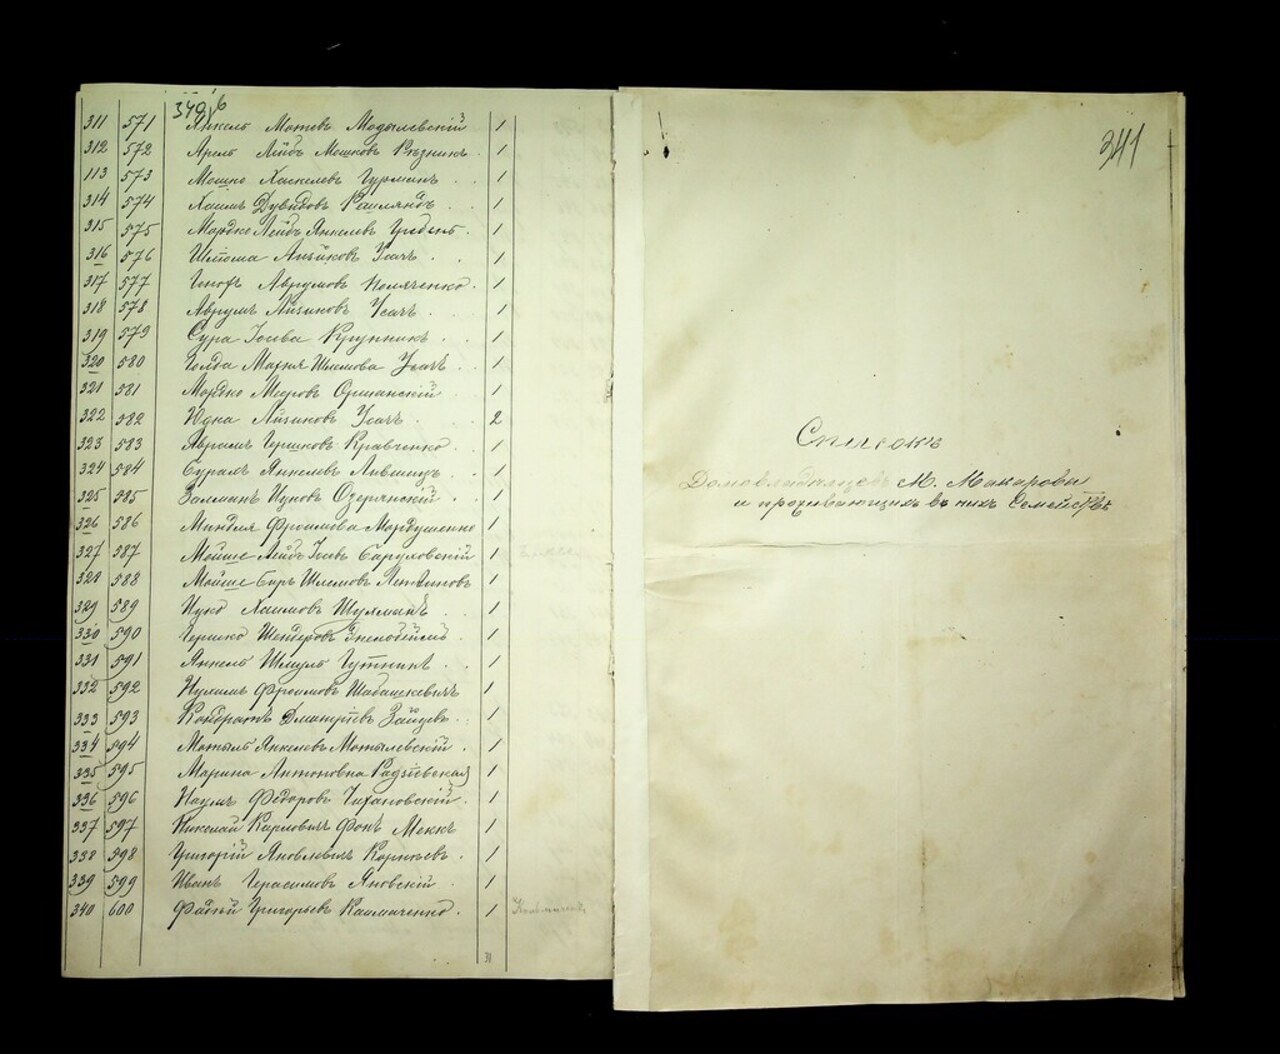 311 571 Янкель Мотев Модылевскій 1
312 572 Арель Лейб Мошков Рѣзникъ 1
113 573 Мошко Хаскелевъ Гурманъ 1
314 574 Хаимъ Дувидовъ Рашляндъ 1
315 575 Мордко Лейбъ Янкелевъ 1
316 576 Шлёма Айзиковъ Усачъ 1
317 577 Аврумовъ Коляченко 1
318 578 Аврумъ Айзиковъ Усачъ 1
319 579 Сура Іосева Крупникъ 1
320 580 Голда Махня Шлемова Усачъ 1
321 581 Мордко Мееровъ Оршанскій 1
322 582 Юдка Айзиковъ Усачъ 2
323 583 Аврамъ Гершковъ Кравченко 1
324 584 Сурамъ Янкелевъ Лившицъ 1
325 585 Залманъ Ицковъ Озерянскій 1
326 586 Миндля Фроимова Мордушенко 1
327 587 Мойше Лейбъ Іосевъ 1
328 588 Мойше Беръ Шлемовъ 1
329 589 Ицко Хаимовъ Шулманъ 1
330 590 Гершко Шендеровъ 1
331 591 Янкель Шмуль Гутникъ 1
332 592 Нухимъ Фроимовъ Шабашкевичъ 1
333 593 Кондратъ Дмитріевъ Зайцевъ 1
334 594 Мотыль Янкелевъ Мотылевскій 1
335 595 Марина Антоновна Радзіевская 1
336 596 Наумъ Федоровъ Чихановскій 1
337 597 Николай Карловичъ Фонъ Меккъ 1
338 598 Григорій Яковлевичъ Корнѣевъ 1
339 599 Иванъ Герасимовъ Яновскій 1
340 600 Григорьевъ Калмаченко 1
31
341
Списокъ
Домовладѣльцевъ М. Макаровы
и проживающихъ въ нихъ Семействъ